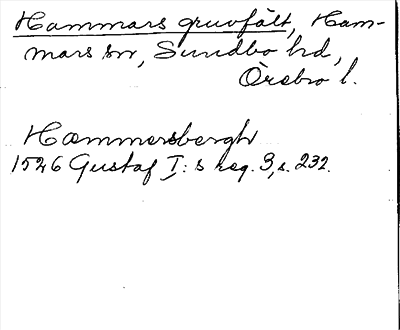 Hammars gruvfält, Ham-
mars sn, Sundbo hd,
Örebro l.
Hammersbergh
1526 Gustaf I:s reg. 3, s. 232.